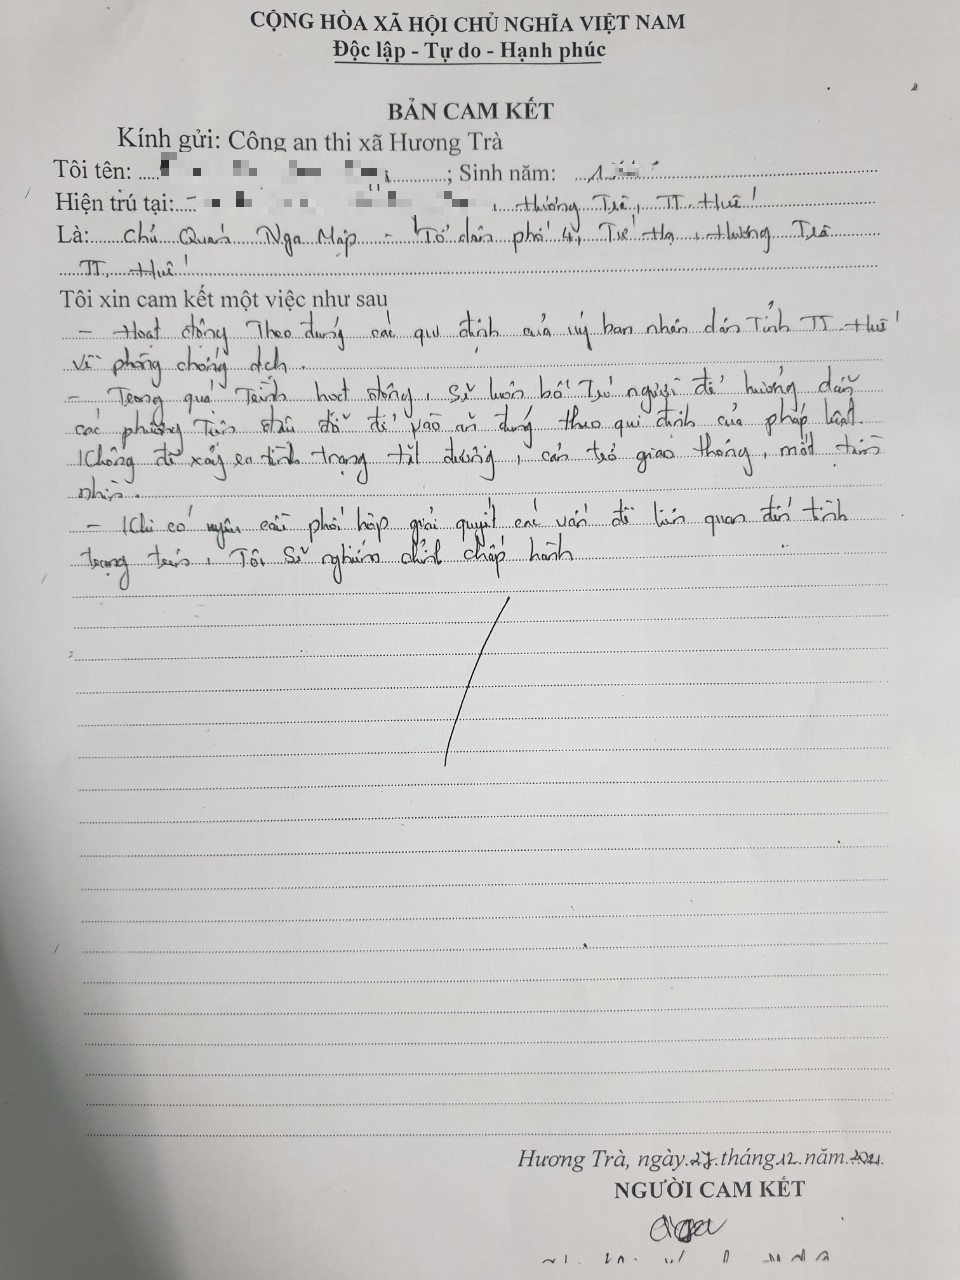 CỘNG HÒA XÃ HỘI CHỦ NGHĨA VIỆT NAM
Độc lập - Tự do - Hạnh phúc
BẢN CAM KẾT
Kính gửi: Công an thi xã Hương Trà
Tôi tên: ; Sinh năm:
Hiện trú tại: , Hương Trà, TT. Huế
Là: Chủ Quán Nga Mập - Tổ dân phố 4, Tứ Hạ, Hương Trà
TT. Huế
Tôi xin cam kết một việc như sau
- Hoạt động Theo đúng các qui định của uỷ ban nhân dân Tỉnh TT. Huế
Về phòng chống dịch.
- Trong quá Trình hoạt động, sẽ luôn bố Trí người để hướng dẫn
các phương Tiện đậu đỗ để vào ăn đúng theo qui định của pháp luật.
Không để xảy ra tình trạng tật đường, cản trở giao thông, mất tầm
nhìn.
- Khi có yêu cầu phối hợp giải quyết các vấn đề liên quan đến tình
trạng trên, Tôi sẽ nghiêm chỉnh chấp hành
Hương Trà, ngày 27 tháng 12 năm 2021
NGƯỜI CAM KẾT